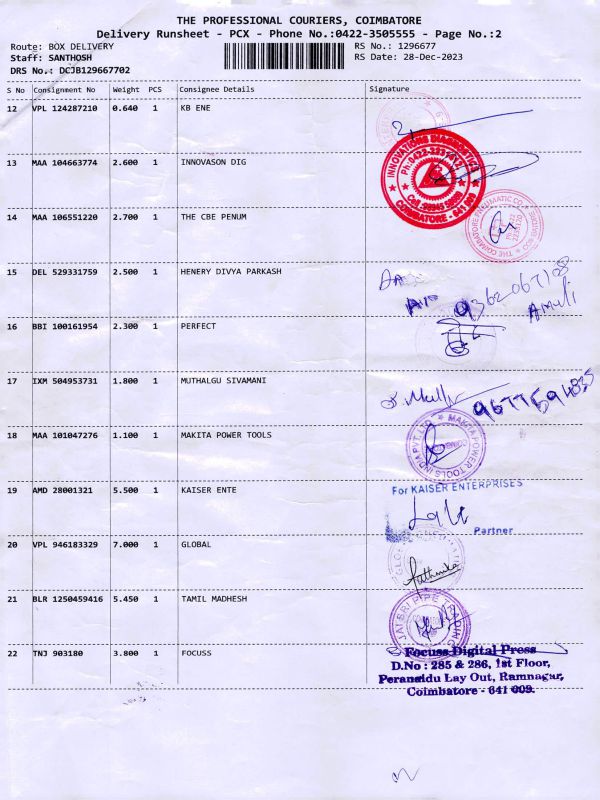 THE PROFESSIONAL COURIERS, COIMBATORE
Delivery Runsheet - PCX - Phone No.:0422-3505555 - Page No.:2
Route: BOX DELIVERY
RS No.: 1296677
Staff: SANTHOSH
RS Date: 28-Dec-2023
DRS No.: DCJB129667702
S No Consignment No Weight PCS Consignee Details Signature
12 VPL 124287210 0.640 1 KB ENE
13 MAA 104663774 2.600 1 INNOVASON DIG
COIMBATORE - 641 009
14 MAA 106551220 2.700 1 THE CBE PENUM
15 DEL 529331759 2.500 1 HENERY DIVYA PARKASH
Amuli
16 BBI 100161954 2.300 1 PERFECT
17 IXM 504953731 1.800 1 MUTHALGU SIVAMANI
18 MAA 101047276 1.100 1 MAKITA POWER TOOLS
MAKITA POWER TOOLS INDIA PVT. LTD
19 AMD 28001321 5.500 1 KAISER ENTE
For KAISER ENTERPRISES
Partner
20 VPL 946183329 7.000 1 GLOBAL
21 BLR 1250459416 5.450 1 TAMIL MADHESH
JAI SRI PIPE
22 TNJ 903180 3.800 1 FOCUSS
Focuss Digital Press
D.No : 285 & 286, 1st Floor,
Peranaidu Lay Out, Ramnagar,
Coimbatore - 641 009.